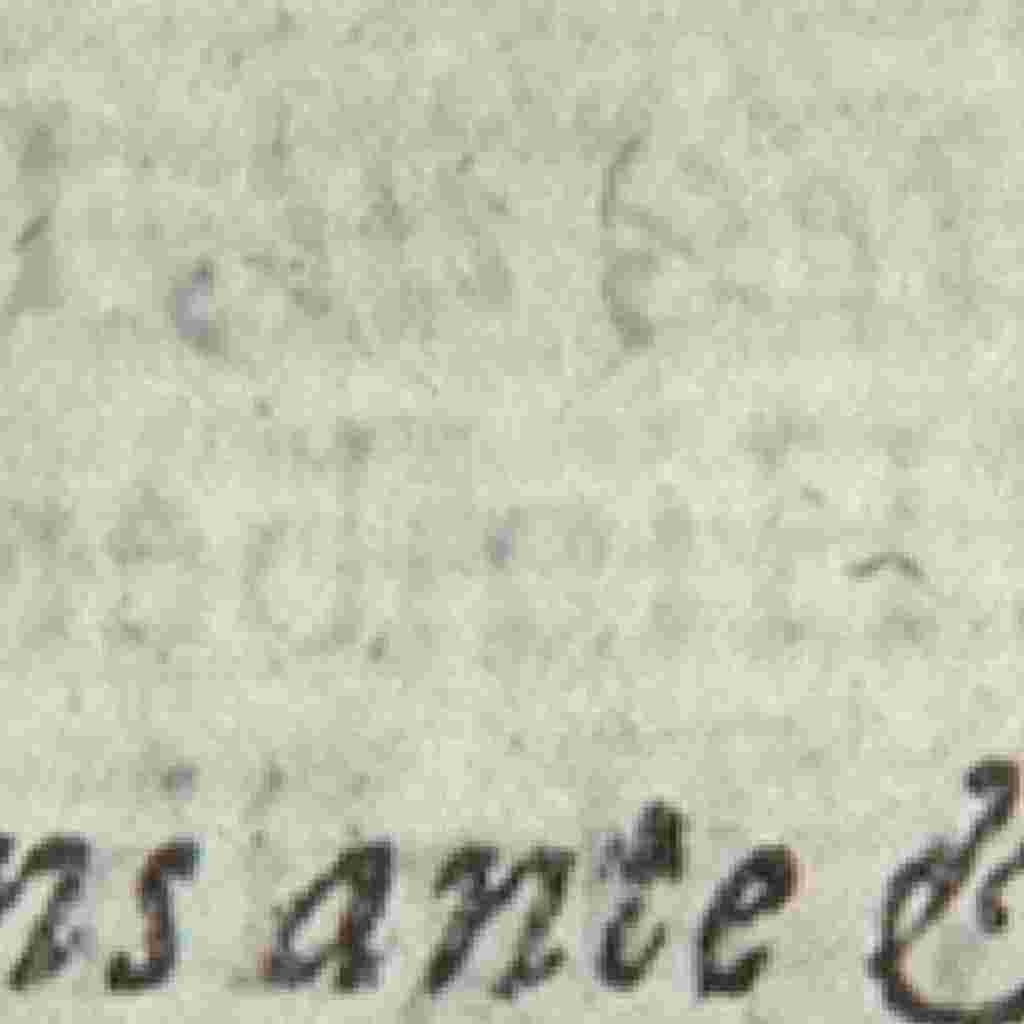 ns ante &